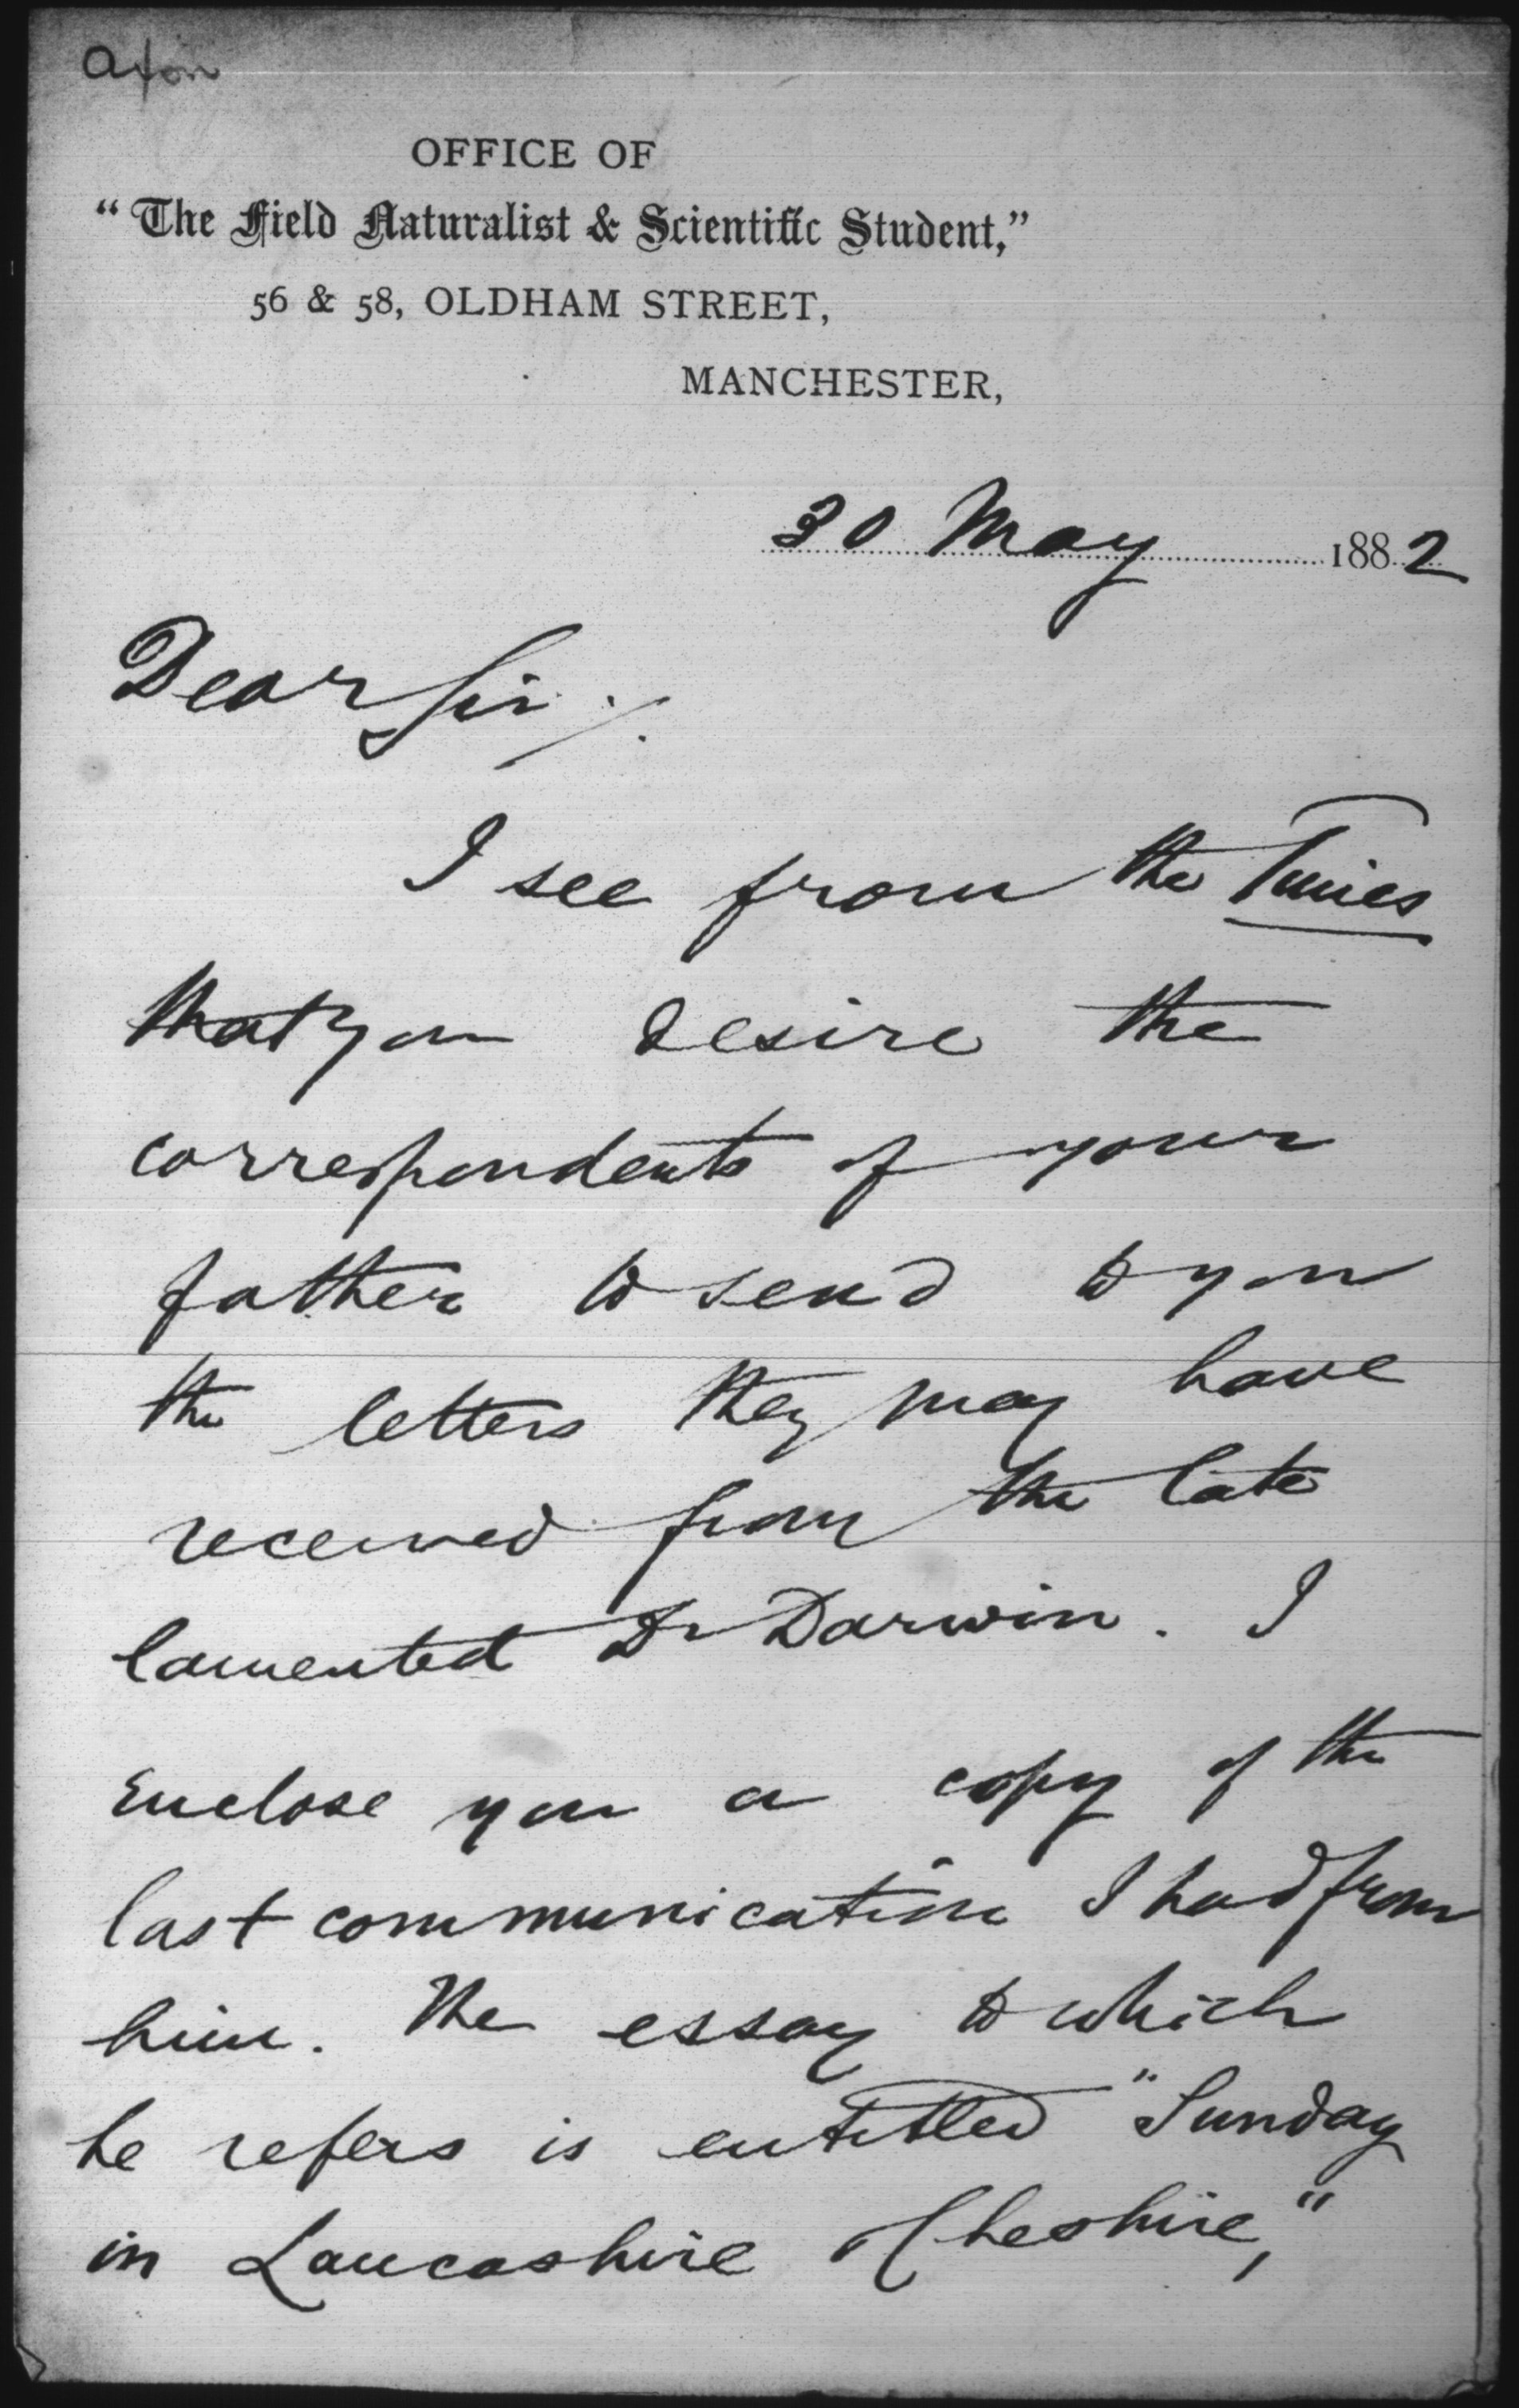 Axon
OFFICE OF
"The Field Naturalist & Scientific Student,"
56 & 58, OLDHAM STREET,
MANCHESTER,
30 May 1882
Dear Sir /.
I see from the Times
that you desire the
correspondents of your
father to send to you
the letters they may have
received from the late
lamented Dr Darwin. I
enclose you a copy of the
last communication I had from
him. The essay to which
he refers is entitled "Sunday
in Lancashire & Cheshire,"